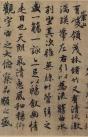 峻領茂林脩竹又有清流激
湍暎帶左右引以為流觴曲水
列坐其次雖無絲竹管弦之
盛一觴一詠亦足以暢敘幽情
是日也天朗氣清惠風和暢仰
觀宇宙之大俯察品類之盛